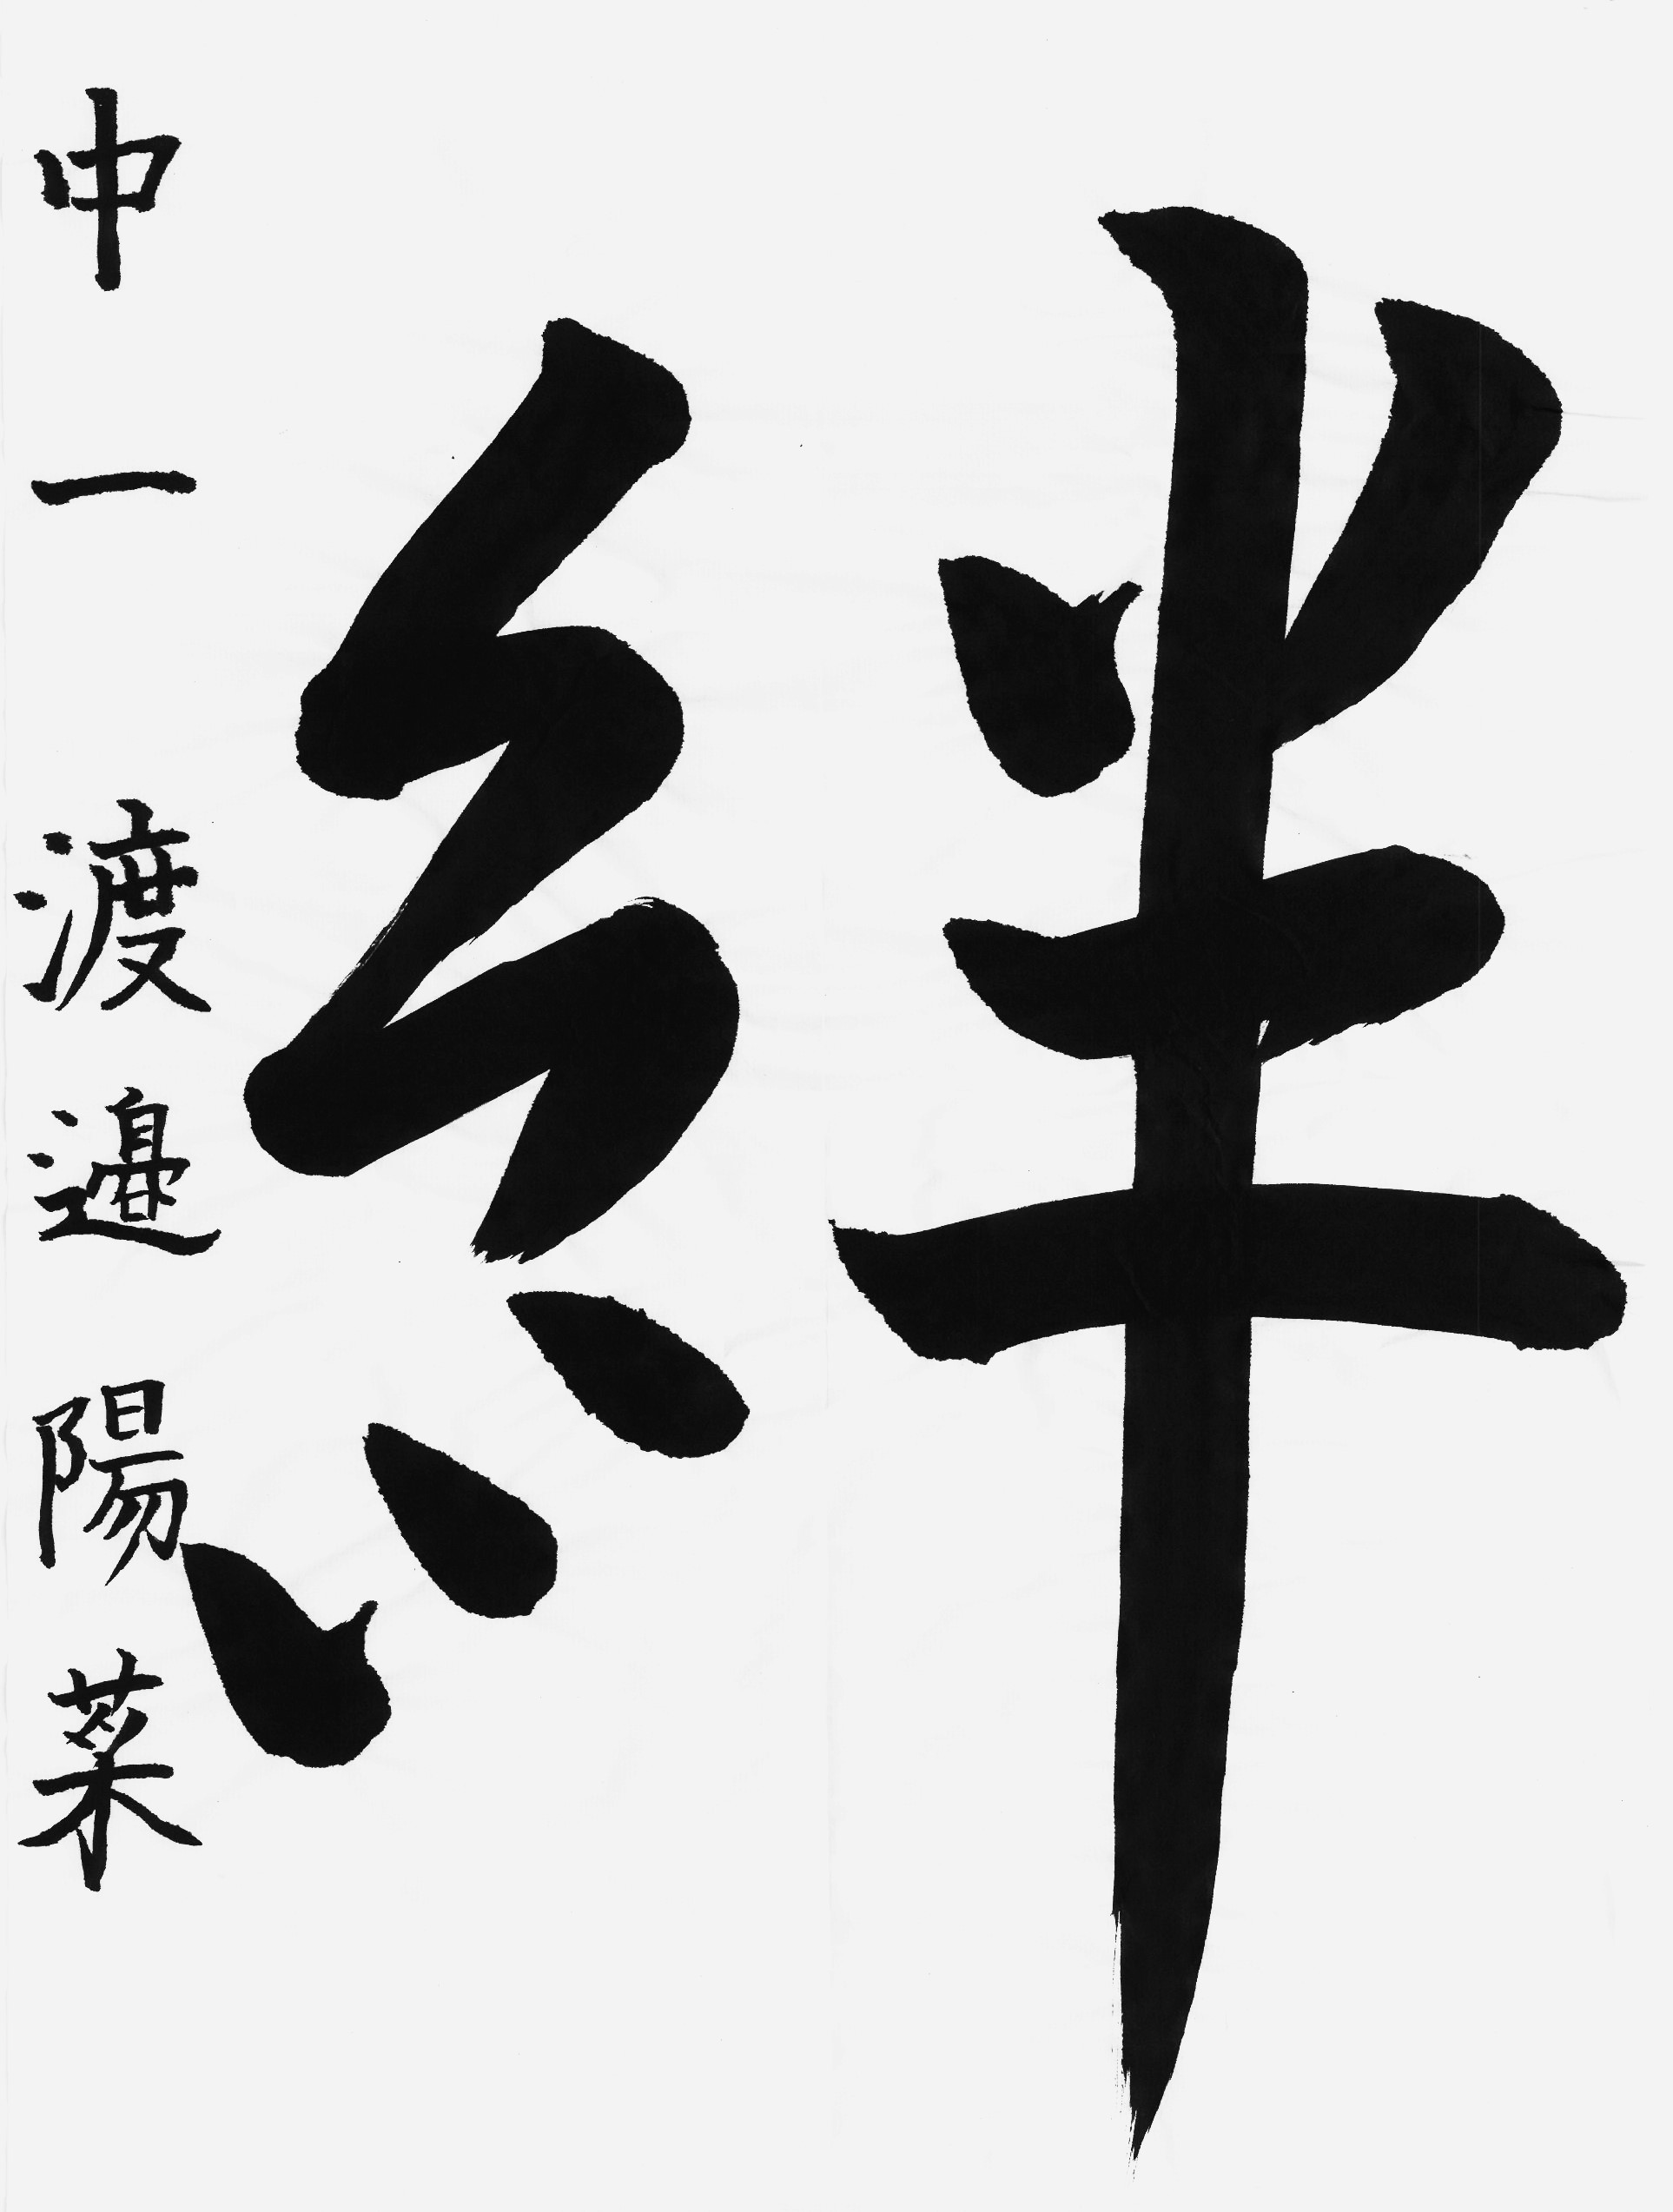 絆
中一 渡邉陽菜